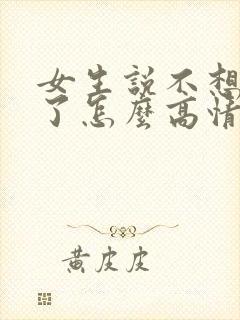 女生説不想
了怎麼高情
黄皮皮